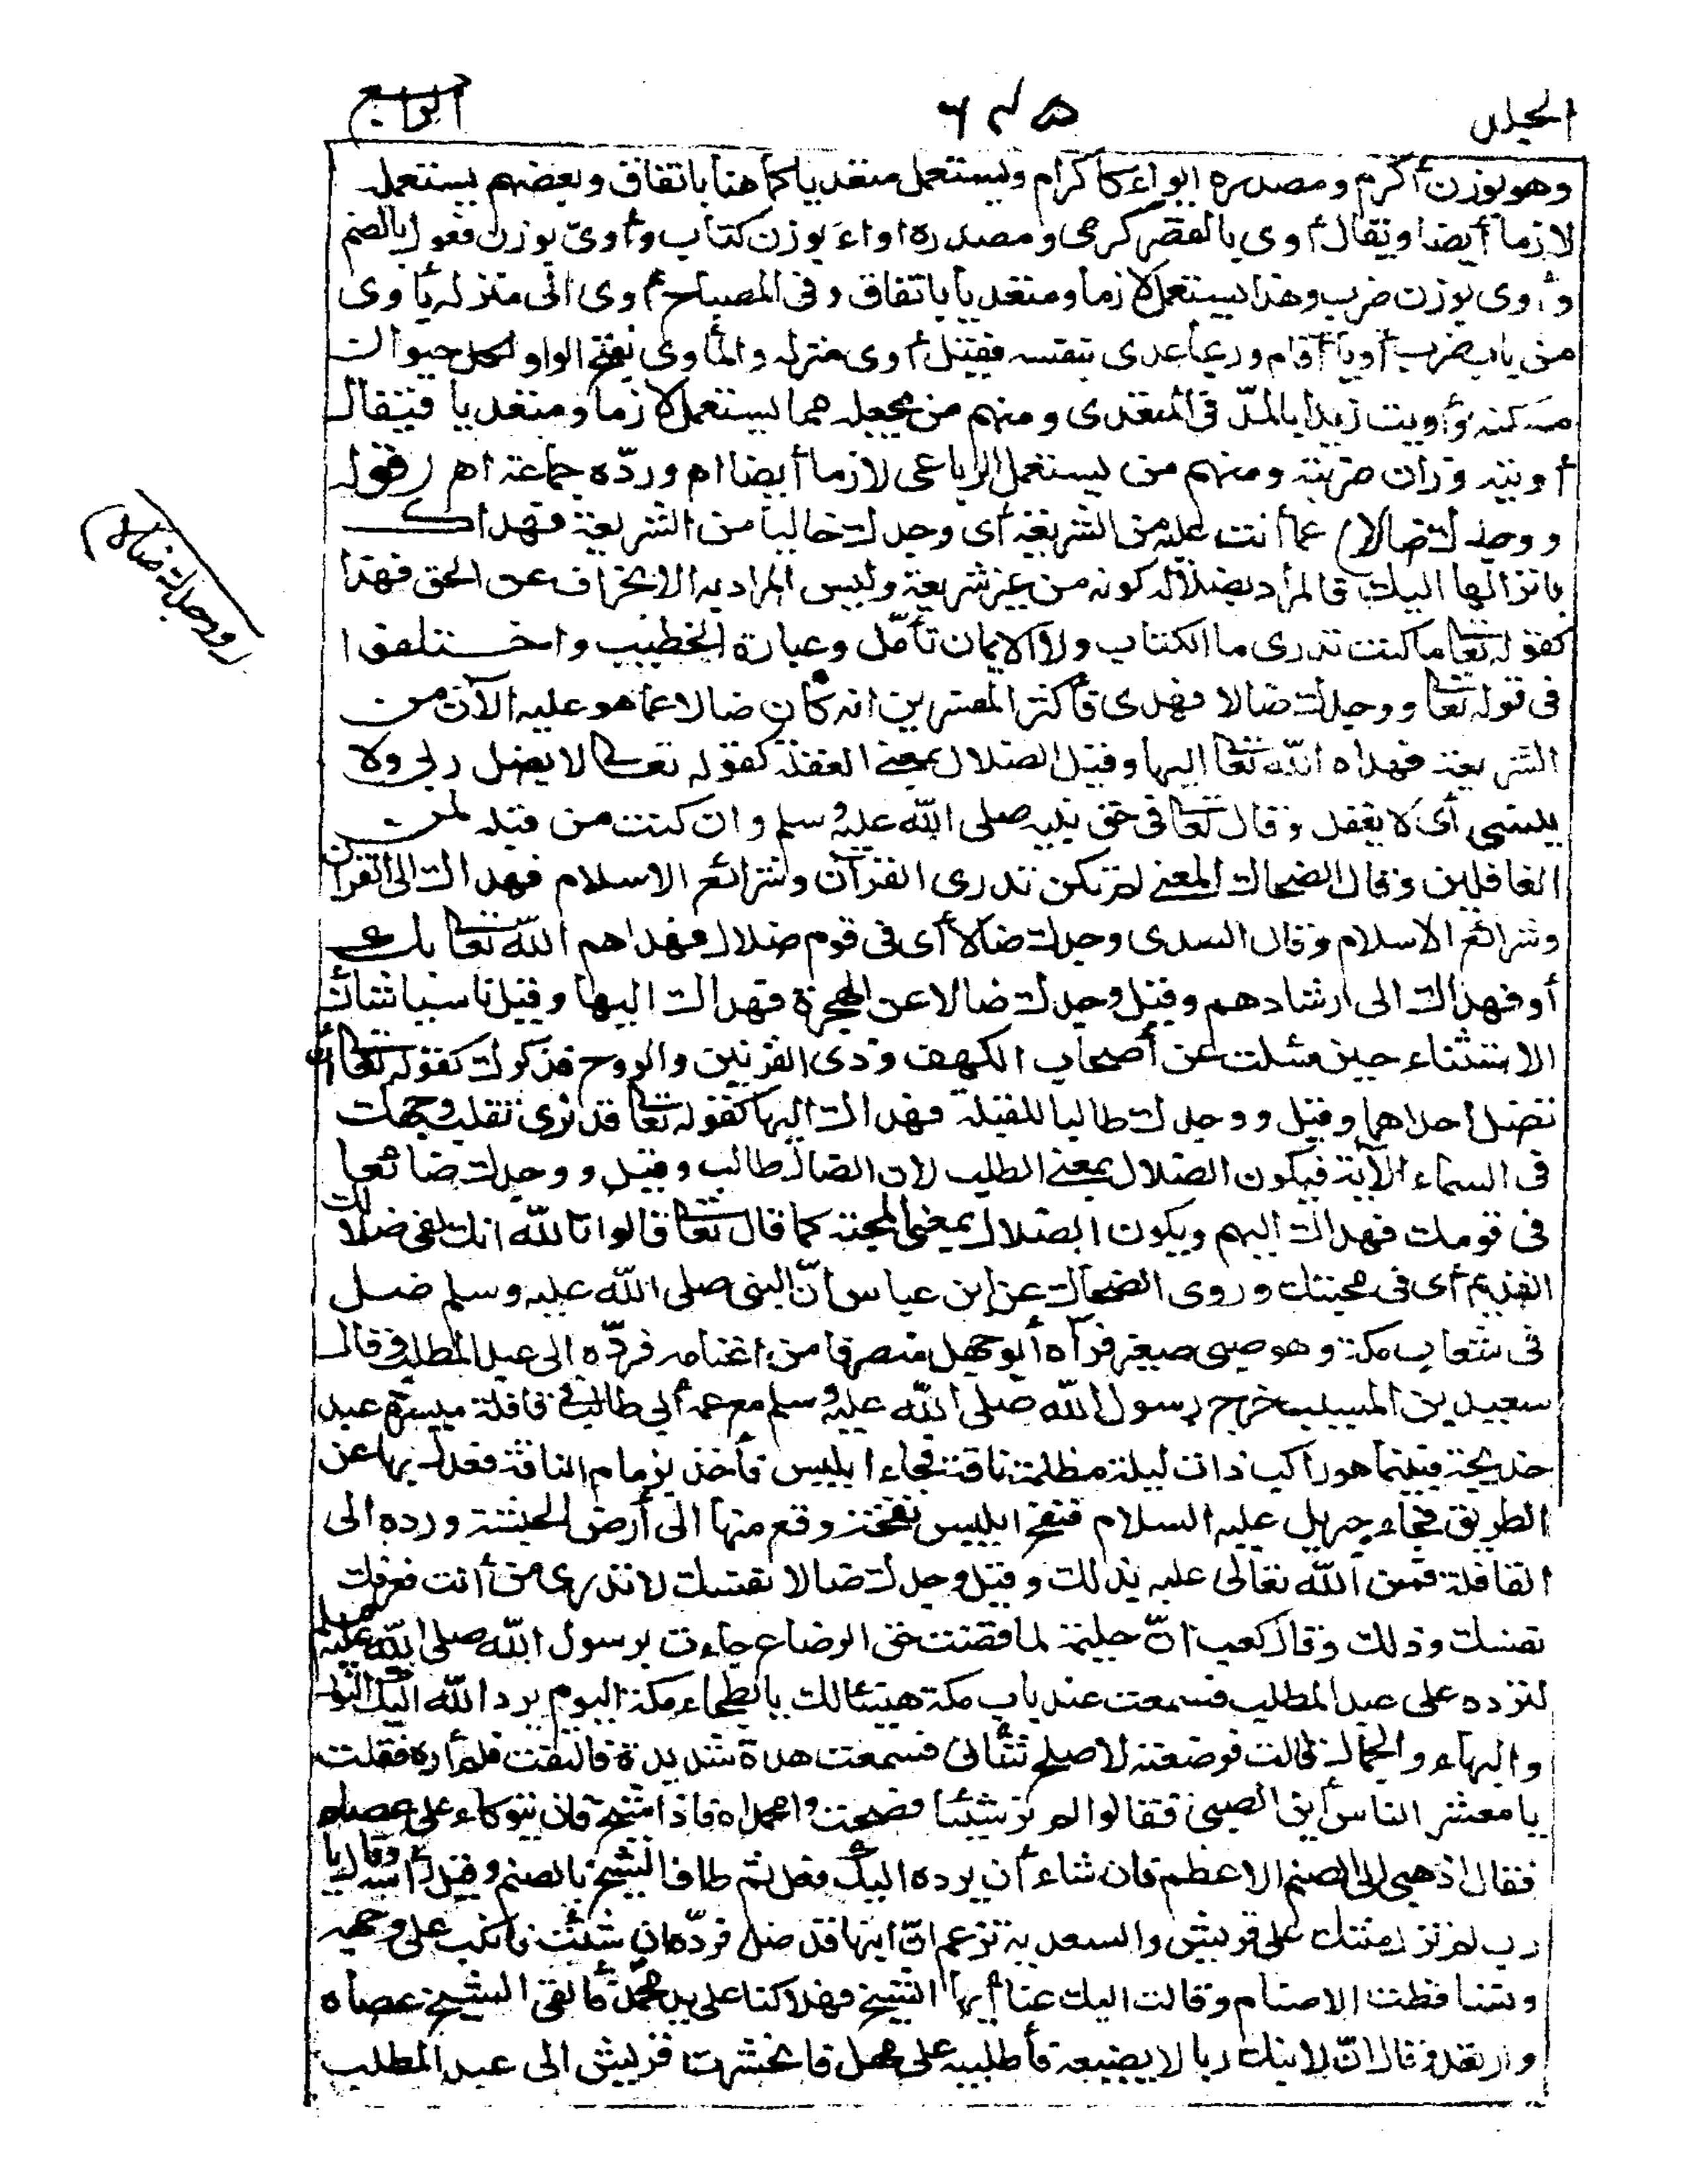 الجلد ٥٤٦ الرابع
وهو بوزن أكرم ومصدره ايواء كاكرام ويستعمل متعديا كما هنا باتفاق وبعضهم يستعمل
لازما أيضا ويقال أوى بالقصر كرمى ومصدره اواء بوزن كتاب وأوى بوزن فعول بالضم
وأوى بوزن ضرب وهذا يستعمل لازما ومتعديا باتفاق وفى المصباح أوى الى منزله يأوى
من باب ضرب أويا أقام وربما عدى بنفسه فقيل أوى منزله والمأوى بفتح الواو لكل حيوان
مسكنه وأويت زيدا بالمدّ فى المتعدى ومنهم من يجعله مما يستعمل لازما ومتعديا فيقال
أويته وزان ضربته ومنهم من يستعمل الرباعى لازما أيضا اه وردّه جماعة اه (قوله
ووجدك ضالا) عما أنت عليه من الشريعة أى وجدك خاليا من الشريعة فهداك
بانزالها اليك فالمراد بضلاله كونه من غير شريعة وليس المراد به الانحراف عن الحق فهذا
كقوله تعا ما كنت تدرى ما الكتاب ولا الايمان تأمّل وعبارة الخطيب واختلفوا
فى قوله تعا ووجدك ضالا فهدى فأكثر المفسرين انه كان ضالا عما هو عليه الآن من
الشريعة فهداه الله تعا اليها وقيل الضلال بمعنى الغفلة كقوله تعالى لا يضل ربى ولا
ينسى أى لا يغفل وقال تعا فى حق نبيه صلى الله عليه وسلم وان كنت من قبله لمن
الغافلين وقال الضحاك المعنى لم تكن تدرى القرآن وشرائع الاسلام فهداك الى القرآن
وشرائع الاسلام وقال السدى وجدك ضالا أى فى قوم ضلال فهداهم الله تعا بك
أو فهداك الى ارشادهم وقيل وجدك ضالا عن الهجرة فهداك اليها وقيل ناسيا شأن
الاستثناء حين سئلت عن أصحاب الكهف وذى القرنين والروح فذكرك كقوله تعا أن
تضل احداهما وقيل ووجدك طالبا للقبلة فهداك اليها كقوله تعا قد نرى تقلب وجهك
فى السماء الآية فيكون الضلال بمعنى الطلب لان الضال طالب وقيل ووجدك ضائعا
فى قومك فهداك اليهم ويكون الضلال بمعنى المحبة كما قال تعا قالوا تالله انك لفى ضلالك
القديم أى فى محبتك وروى الضحاك عن ابن عباس انّ النبى صلى الله عليه وسلم ضل
فى شعاب مكة وهو صبى صغير فرآه أبو جهل منصرفا من اغنامه فردّه الى عبد المطلب وقال
سعيد بن المسيب خرج رسول الله صلى الله عليه وسلم مع عمه أبى طالب فى قافلة ميسرة عبد
خديجة فبينما هو راكب ذات ليلة مظلمة ناقة فجاء ابليس فأخذ بزمام الناقة فعدل بها عن
الطريق فجاء جبريل عليه السلام فنفخ ابليس نفخة وقع منها الى أرض الحبشة ورده الى
القافلة فمن الله تعالى عليه بذلك وقيل وجدك ضالا نفسك لا تدرى من أنت فعرفك
نفسك وذلك وقال كعب انّ حليمة لما قضت حق الرضاع جاءت برسول الله صلى الله عليه وسلم
لترده على عبد المطلب فسمعت عند باب مكة هنيئا لك يا بطحاء مكة اليوم يرد الله اليك النور
والبهاء والجمال قالت فوضعته لاصلح ثيابى فسمعت هدة شديدة فالتفت فلم أره فقلت
يا معشر الناس أين الصبى فقالوا لم نر شيئا فصحت وامحمداه فاذا شيخ فان يتوكاء على عصاه
فقال اذهبى الى الصنم الاعظم فان شاء أن يرده اليك فعل ثم طاف الشيخ بالصنم وقبل رأسه وقال يا
رب لم تزل منتك على قريش والسعدية تزعم انّ ابنها قد ضل فردّه ان شئت فانكب على وجهه
وتساقطت الاصنام وقالت اليك عنا أيها الشيخ فهلاكنا على يد محمد فألقى الشيخ عصاه
وارتعد وقال انّ لابنك ربا لا يضيعه فأطلبيه على مهل فانحشرت قريش الى عبد المطلب
(ووجدك ضالا)